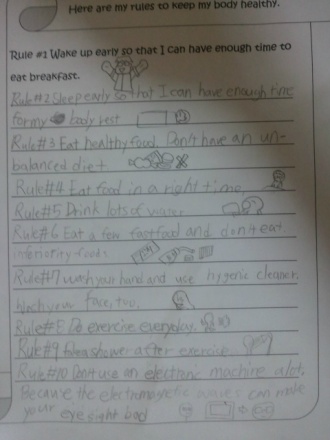 Here are my rules to keep my body healthy.
Rule #1 Wake up early so that I can have enough time to
eat breakfast.
Rule#2 Sleep early so that I can have enough time
for my body rest
Rule#3 Eat healthy food. Don't have an un-
balanced diet
Rule#4 Eat food in a right time.
Rule#5 Drink lots of water
Rule#6 Eat a few fastfood and don't eat
inferiority foods
Rule#7 wash your hand and use hygenic cleaner.
Wach your face, too.
Rule#8 Do exercise everyday.
Rule#9 Take a shower after exercise.
Rule#10 Don't use an electronic machine alot.
Because the electromagnetic waves can make
your eye sight bad